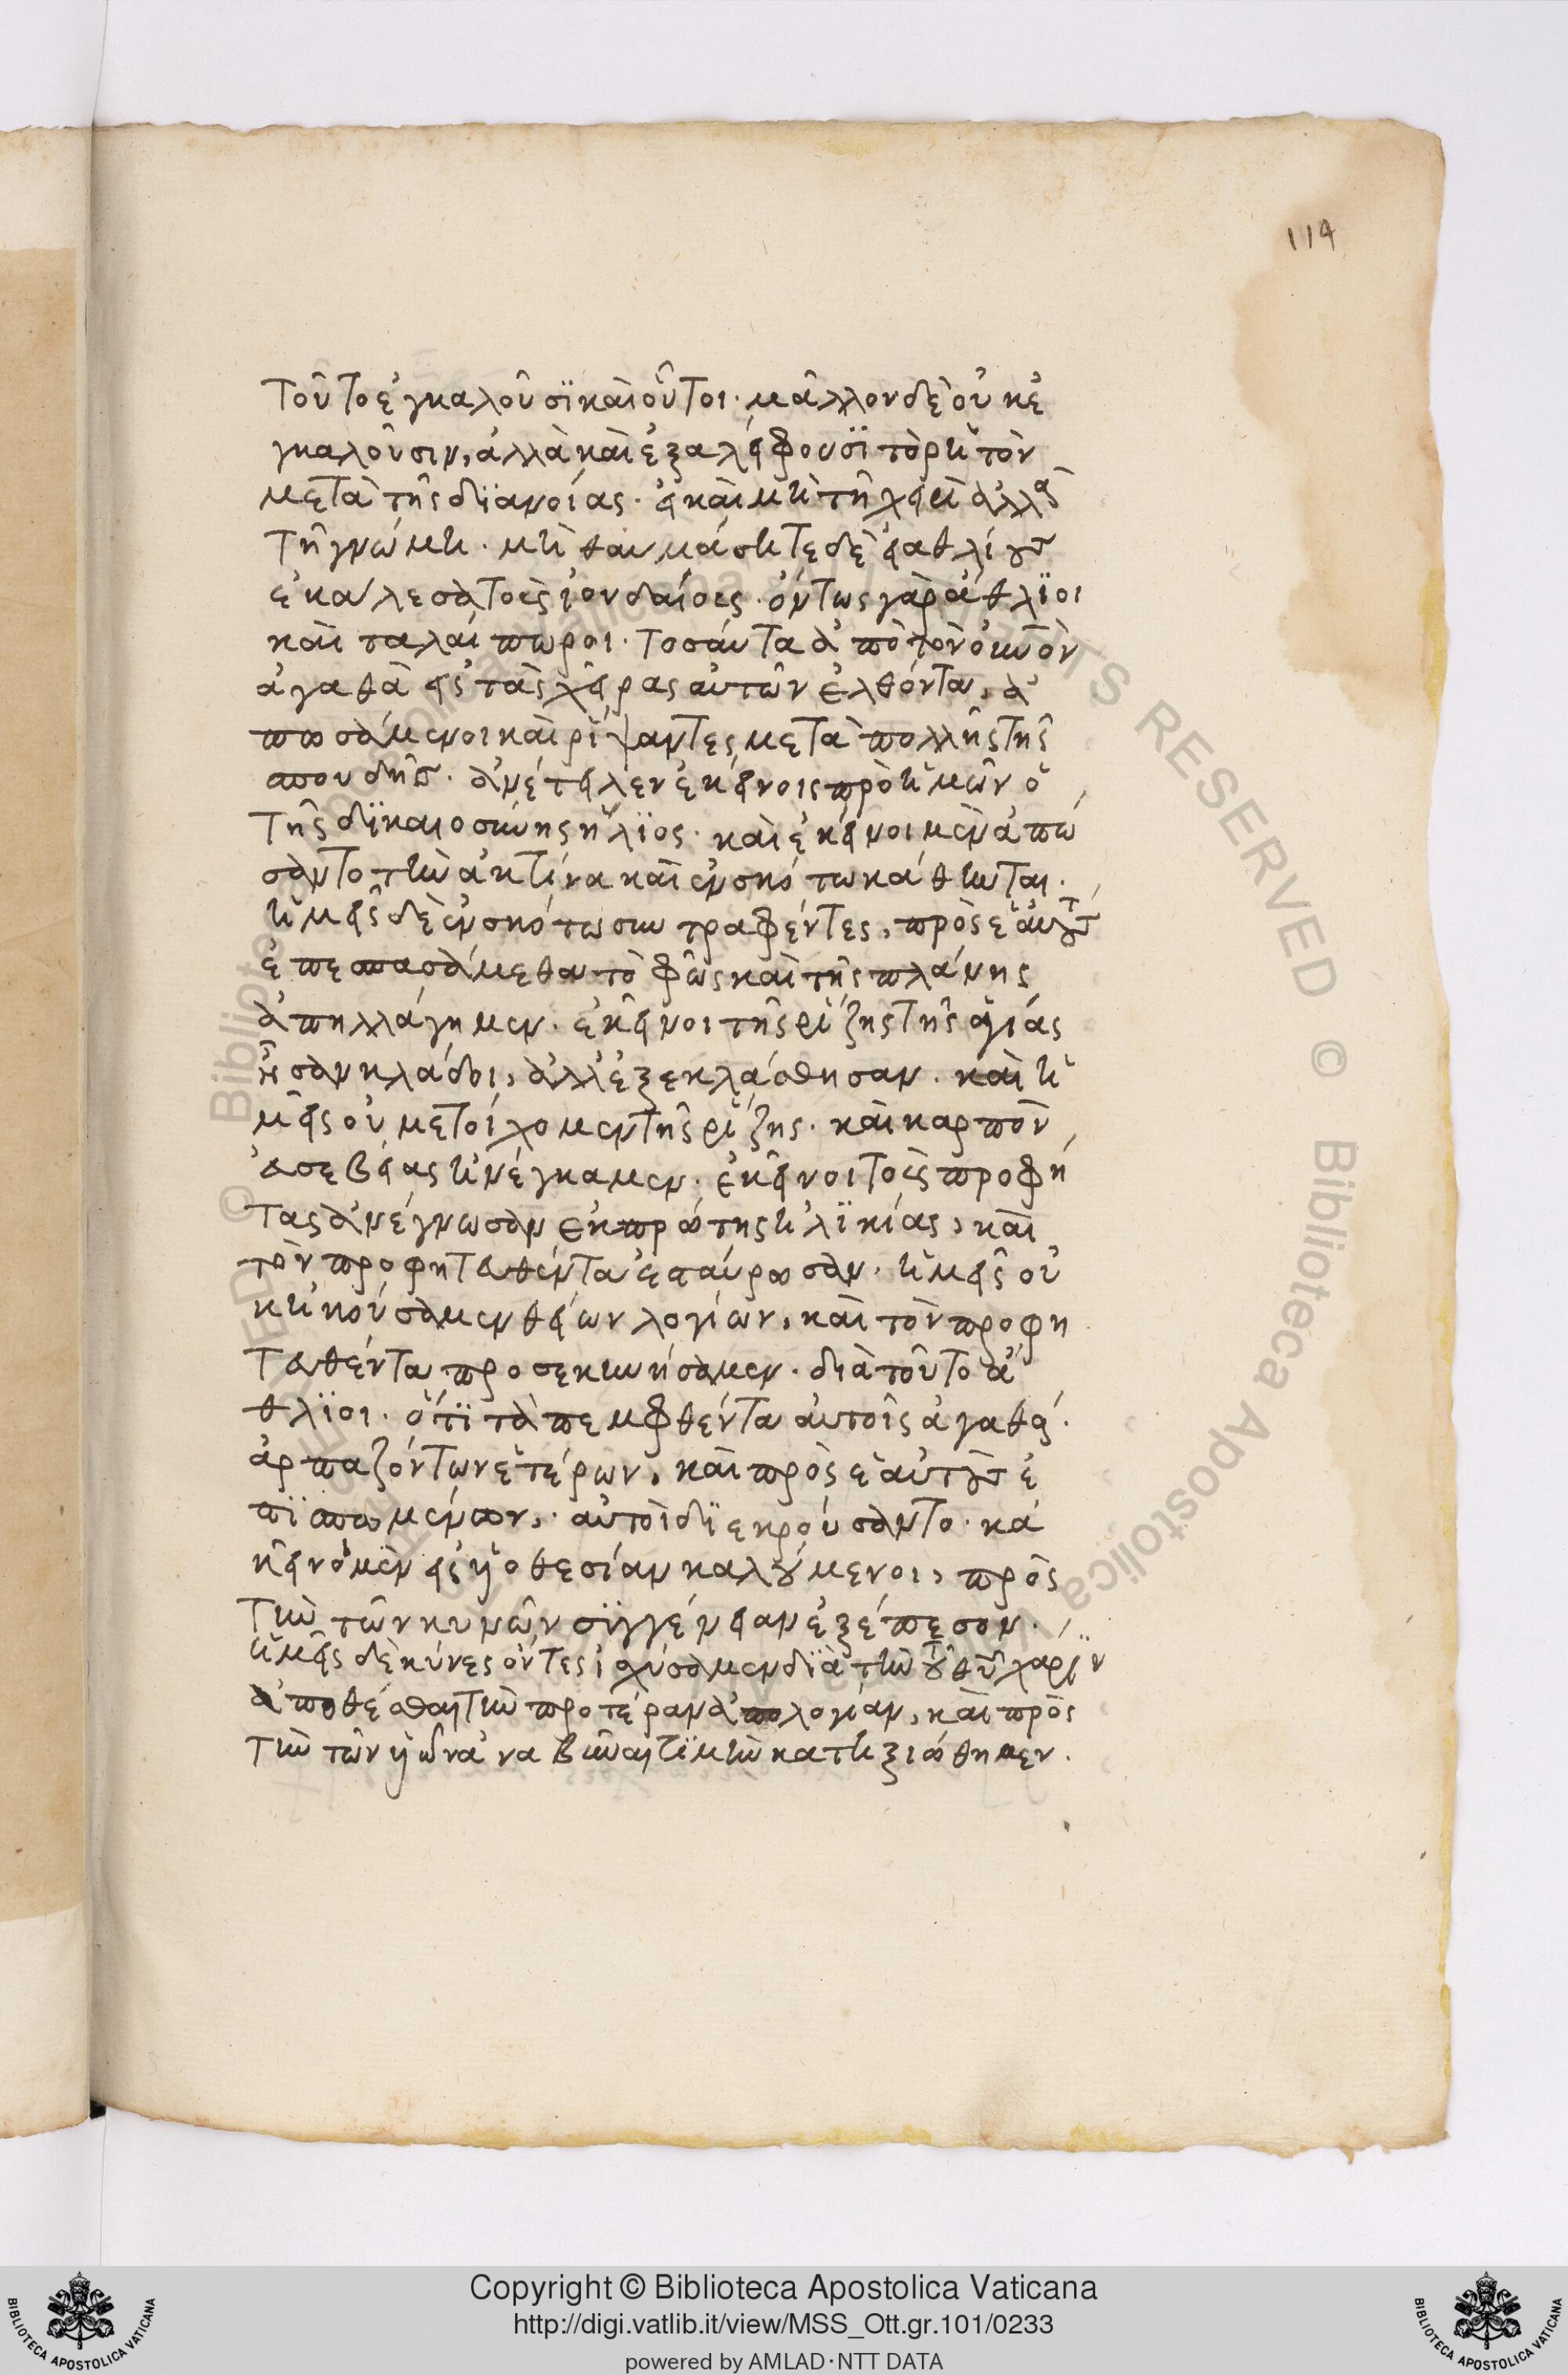 114
τοῦτο ἐγκαλοῦσϊ καὶ οὗτοι· μᾶλλον δὲ οὐκ ἐ
γκαλοῦσιν, ἀλλὰ καὶ ἐξαλείφουσϊ τὸ ῥητὸν
μετὰ τῆς δϊανοίας· εἰ καὶ μὴ τῆ χειρὶ ἀλλὰ
τῆ γνώμη· μὴ θαυμάσητε δὲ εἰ ἀθλίους
ἐκάλεσα τοὺς ἰουδαίους· ὄντως γὰρ ἄθλϊοι
καὶ ταλαίπωροι· τοσαῦτα ἀπὸ τῶν οὐνῶν
ἀγαθὰ εἰς τὰς χεῖρας αὐτῶν ἐλθόντα, ἀ
πωσάμενοι καὶ ῥίψαντες μετὰ πολλῆς τῆς
σπουδῆς· ἀνέτειλεν ἐκείνοις πρὸ ἡμῶν ὁ
τῆς δϊκαιοσύνης ἥλϊος· καὶ ἐκεῖνοι μὲν ἀπώ
σαντο τὴν ἀκτίνα καὶ ἐν σκότω κάθηνται·
ἡμεῖς δὲ ἐν σκότω συντραφέντες, πρὸς ἑαυτοὺς
ἐπεσπασάμεθα τὸ φῶς καὶ τῆς πλάνης
ἀπηλλάγημεν· ἐκεῖνοι τῆς ῥίζης τῆς ἁγίας
ἦσαν κλάδοι, ἀλλ' ἐξεκλάσθησαν· καὶ ἡ
μεῖς οὐ μετοίχομεν τῆς ῥίζης· καὶ καρπὸν
ἀσεβείας ἠνέγκαμεν· ἐκεῖνοι τοὺς προφή
τας ἀνέγνωσαν ἐκ πρώτης ἡλϊκίας, καὶ
τὸν προφητευθέντα ἐσταύρωσαν· ἡμεῖς οὐ
κ ἠκούσαμεν θείων λογίων, καὶ τὸν προφη
τευθέντα προσεκυνήσαμεν· διὰ τοῦτο ἄ
θλϊοι· ὅτϊ τὰ πεμφθέντα αὐτοῖς ἀγαθά·
ἁρπαζόντων ἑτέρων, καὶ πρὸς ἑαυτοὺς ἐ
πϊσπωμένων,· αὐτοὶ δϊεκρούσαντο· κἀ
κεῖνο μὲν εἰς ὑϊοθεσίαν καλούμενοι, πρὸς
τὴν τῶν κυνῶν συγγένειαν ἐξέπεσον·
ἡμεῖς δὲ κύνες ὄντες ἰσχύσαμεν δϊὰ τὴν τοῦ θυ χάριν
ἀποθέσθαι τὴν προτέραν ἀπολογίαν, καὶ πρὸς
τὴν τῶν ὑιῶν ἀναβῆναι τϊμὴν κατηξιώθημεν·
Copyright © Biblioteca Apostolica Vaticana
http://digi.vatlib.it/view/MSS_Ott.gr.101/0233
powered by AMLAD·NTT DATA